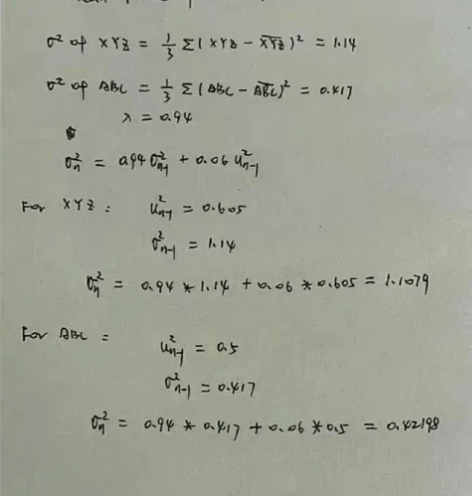 σ² of XYZ = 1/3 Σ(XYZ - X̅Y̅Z̅)² = 1.14
σ² of ABC = 1/3 Σ(ABC - A̅B̅C̅)² = 0.417
λ = 0.94
σ²ₙ = 0.94 σ²ₙ₋₁ + 0.06 u²ₙ₋₁
For XYZ : u²ₙ₋₁ = 0.605
σ²ₙ₋₁ = 1.14
σ²ₙ = 0.94 * 1.14 + 0.06 * 0.605 = 1.1079
For ABC : u²ₙ₋₁ = 0.5
σ²ₙ₋₁ = 0.417
σ²ₙ = 0.94 * 0.417 + 0.06 * 0.5 = 0.42198